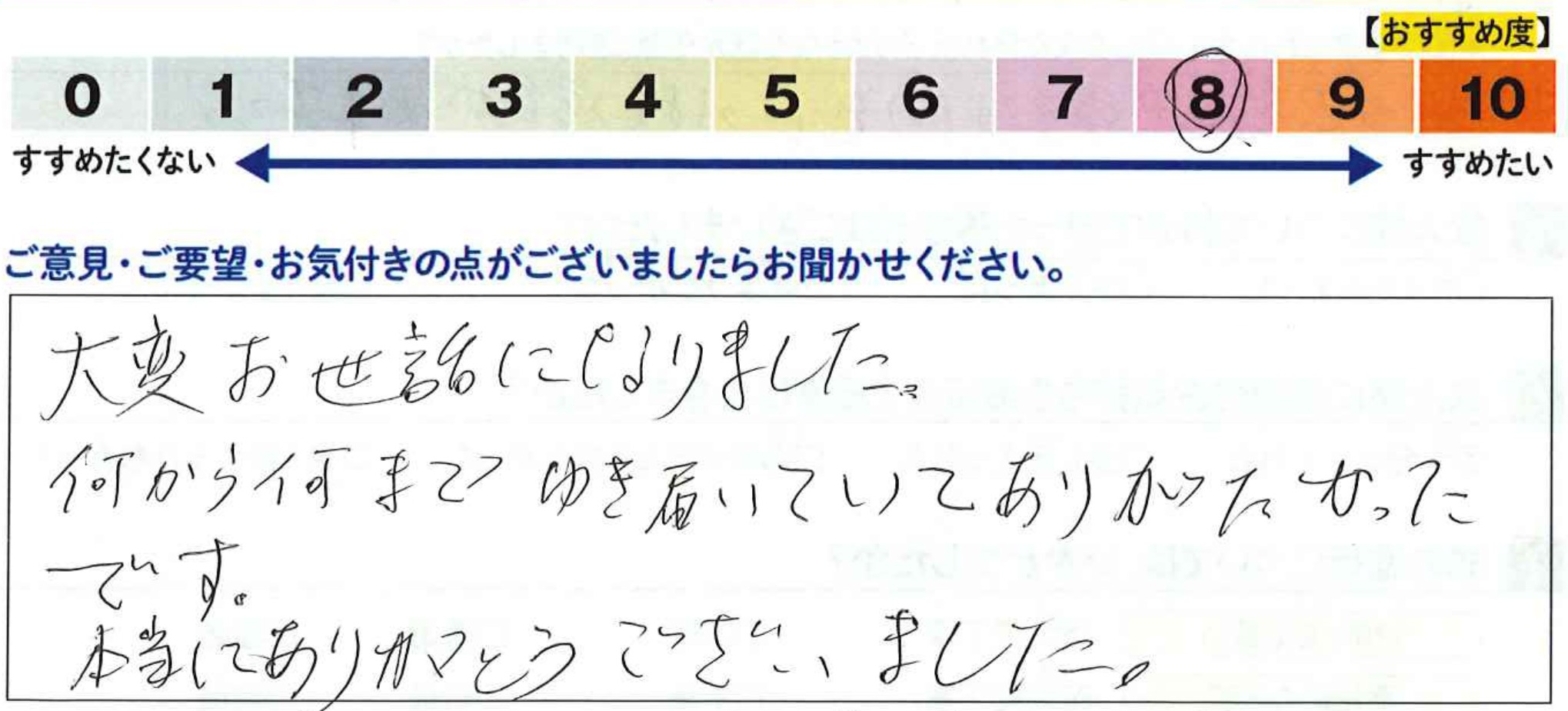 【おすすめ度】
0 1 2 3 4 5 6 7 8 9 10
すすめたくない すすめたい
ご意見・ご要望・お気付きの点がございましたらお聞かせください。
大変お世話になりました。
何から何までゆき届いていてありがたかった
です。
本当にありがとうございました。